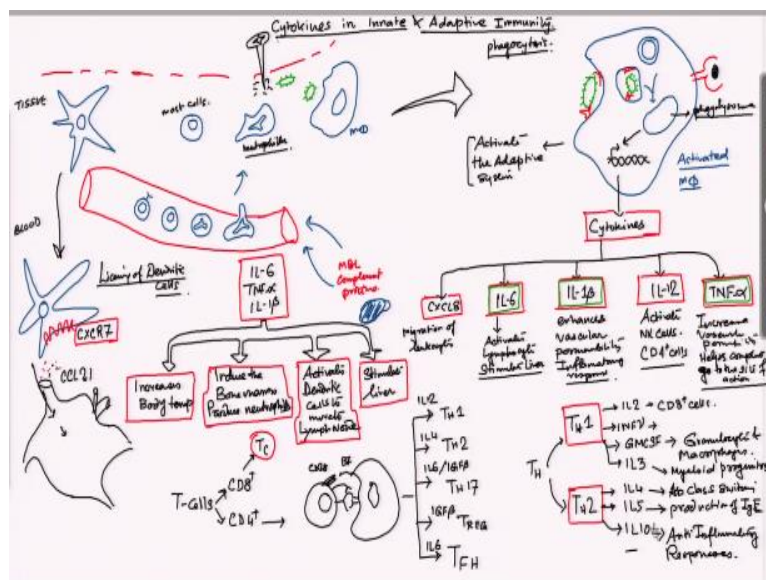 Cytokines in Innate & Adaptive Immunity
phagocytosis.
TISSUE
mast cells.
neutrophils.
MΦ
Activate
the Adaptive
System
phagolysosome
Activated
MΦ
Cytokines
BLOOD
Licensing of Dendritic
cells
CXCR7
CCL21
IL-6
TNFα
IL-1β
MBL
complement
proteins
CXCL8
IL-6
IL-1β
IL-12
TNFα
migration of
leukocytes
Activates
Lymphocytes
Stimulates Liver
enhances
vascular
permeability
Inflammatory
response
Activate
NK cells.
CD4+ cells
Increases
Vascular
Helps
action
Increases
Body temp
Induce the
Bone marrow
Produce neutrophils
Activates
Dendritic
cells to
Lymph Node
Stimulate
liver
Tc
T-cells
CD8+
CD4+
IL12
TH1
IL4
TH2
IL6/TGFβ
TH17
TGFβ
TREG
IL6
TFH
TH
TH1
IL2 → CD8+ cells.
INFγ
GMCSF → Granulocytes &
Macrophages.
IL3 → Myeloid progenitor
TH2
IL4 → Ab class switching
IL5 → production of IgE
IL10 → Anti Inflammatory
Responses.